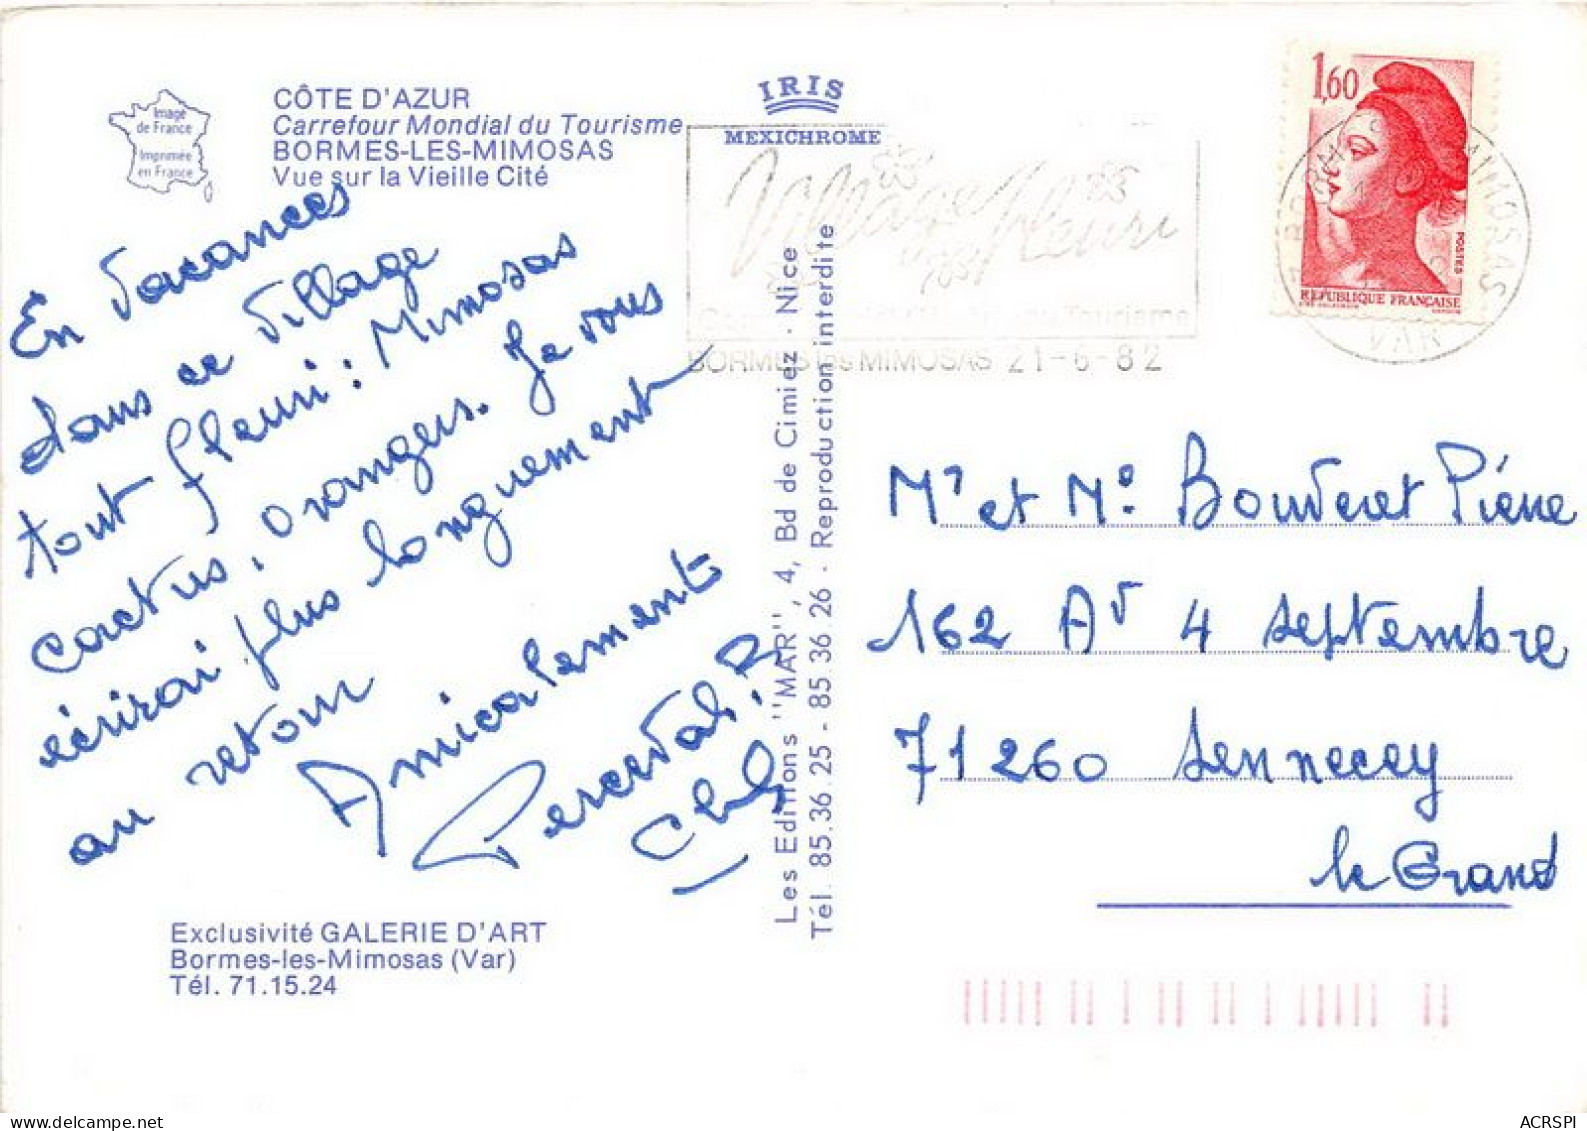 Image
de France
Imprimée
en France
CÔTE D'AZUR
Carrefour Mondial du Tourisme
BORMES-LES-MIMOSAS
Vue sur la Vieille Cité
IRIS
MEXICHROME
Village fleuri
au Tourisme
BORMES les MIMOSAS 21-6-82
1,60
POSTES
REPUBLIQUE FRANÇAISE
MIMOSAS
VAR
En vacances
dans ce village
tout fleuri : Mimosas
cactus, orangers. Je vous
écrirai plus longuement
au retour
Amicalement
Perceval.
Les Editions "MAR", 4, Bd de Cimiez - Nice
Tél. 85.36.25 - 85.36.26 - Reproduction interdite
Mr et Me Bouveret Pierre
162 Av 4 septembre
71260 Sennecey
le Grand
Exclusivité GALERIE D'ART
Bormes-les-Mimosas (Var)
Tél. 71.15.24
ACRSPI